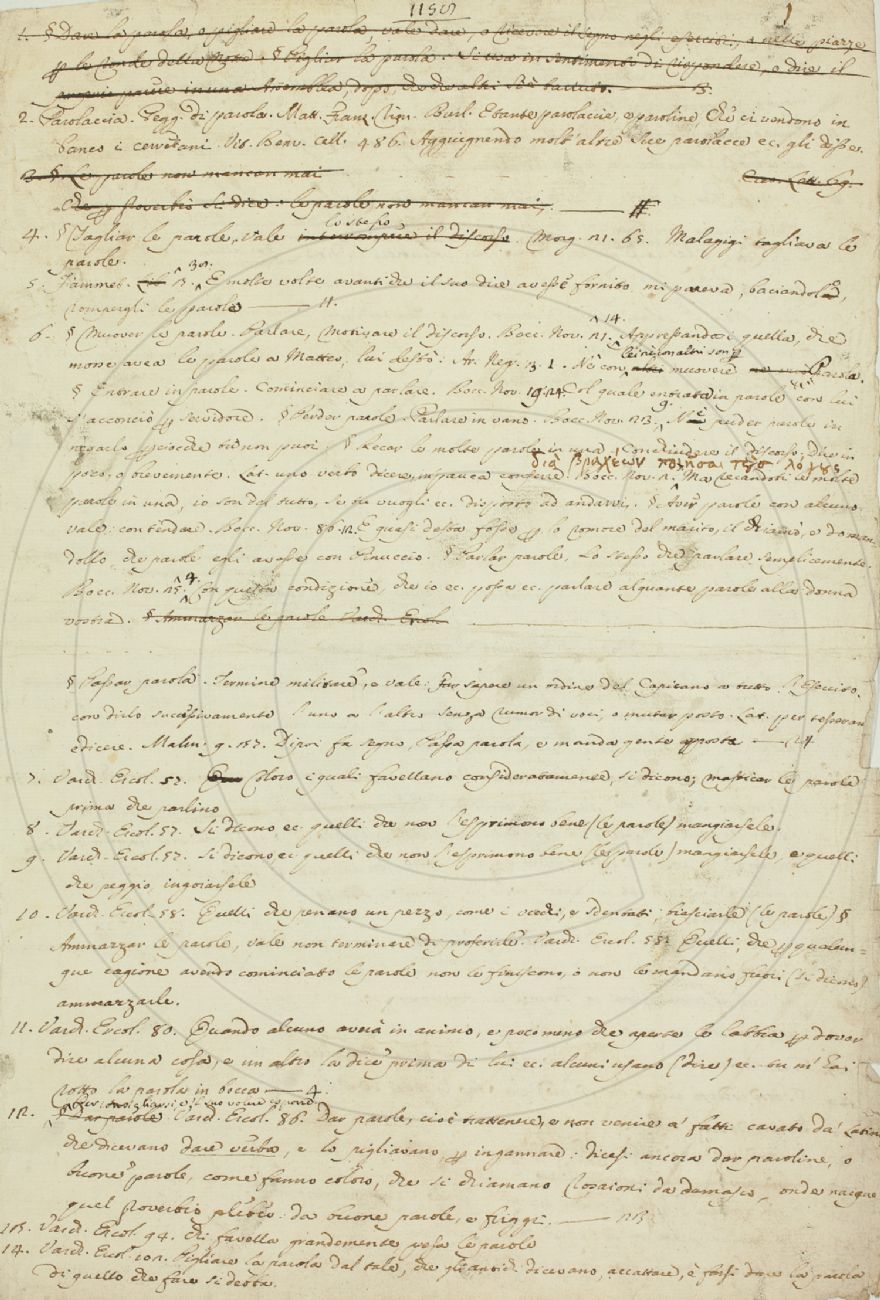 1150
1
1. § Dare la parola, o pigliare la parola, vale dare, o ricevere il segno negli eserciti, o nelle piazze
p le ronde della notte. § Pigliar la parola. Si usa in sentimento di rispondere, o dire il
proprio parere in una Assemblea, dopo che altri
2. Parolaccia. Pegg. di parola. Matt. Franz. Rim. Burl. E tante parolaccie, e paroline, Che ci vendono in
banco i cerretani. Vit. Benv. Cell. 486. Aggiugnendo molt'altre sue parolacce ec. gli disse.
3. § Le parole non mancan mai
Cecc. Lett. 69.
che p Proverbio si dice: le parole non mancan mai.
4. § Tagliar le parole, vale lo stesso interrompere il discorso. Morg. 21. 65. Malagigi tagliava le
parole.
5. Fiammet. Lib. 3. 30. E molte volte avanti che il suo dire avesse fornito mi pareva, baciandolo,
rompergli le parole 11.
6. § Muover le parole. Parlare, Motivare il discorso. Bocc. Nov. 21. 14. Appressandosi quella, che
mosse avea le parole a Matteo, lui destò: Ar. Neg. 3. 1. Nè con lei nè con altri son p muovere Parola.
§ Entrare in parole. Cominciare a parlare. Bocc. Nov. 19. 24. Col quale entrata in parole con lui
s'acconciò p servidore. § Perder parole. Parlare in vano. Bocc. Nov. 23. 9. Nè perder parole in
negarlo perciocchè tu non puoi. § Recar le molte parole in una. Concludere il discorso, dire in
poco, o brevemente. Lat. uno verbo dicere, in pauca conferre. διὰ βραχέων ποιῆσαι τοὺς λόγους Bocc. Nov. 2. Ma recandoti le molte
parole in una, io son del tutto, se tu vuogli ec. disposto ad andarvi. § Aver parole con alcuno
vale: contendere. Bocc. Nov. 86. 12. E quasi desta fosse p lo romore del marito, il chiamò, e doman-
dollo, che parole egli avesse con Pinuccio. § Parlar parole, Lo stesso che parlare semplicemente.
Bocc. Nov. 25. 4. Con questa condizione, che io ec. possa ec. parlare alquante parole alla donna
vostra. § Ammazzar le parole Varch. Ercol.
§ Passar parola. Termine militare, e vale: far sapere un ordine del Capitano a tutto l'Esercito,
con dirlo successivamente l'uno a l'altro senza rumor di voci, o mutar posto. Lat. per tesseram
edicere. Malm. 9. 57. Dipoi fa segno, Passa parola, e manda gente apposta 24
7. Varch. Ercol. 57. Coloro i quali favellano consideratamente, si dicono; masticar le parole
prima che parlino
8. Varch. Ercol. 57. Si dicono ec. quelli che non l'esprimono bene (le parole) mangiarsele.
9. Varch. Ercol. 57. Si dicono ec. quelli che non l'esprimono bene (le parole) mangiarsele, e quelli
che peggio, ingoiarsele
10. Varch. Ercol. 58. Quelli che penano un pezzo, come i vecchi, e sdentati; biasciarle (le parole) §
Ammazzar le parole, vale non terminare di proferirle. Varch. Ercol. 58. Quelli, che p qualun=
que cagione avendo cominciato le parole non le finiscono, o non le mandano fuori (si dicono)
ammazzarle.
11. Varch. Ercol. 80. Quando alcuno aveva in animo, e poco meno che aperte le labbia p dover
dire alcuna cosa, e un altro la dice prima di lui ec. alcuni usano (dire) ec. tu m'hai
rotto la parola in bocca 4
12. Dar parole Varch. Ercol. 86. Dar parole, cioè trattenere, e non venire a' fatti cavato da' Latini
che dicevano dare verba, e lo pigliavano p ingannare: dicesi ancora dar paroline, o
buone parole, come fanno coloro, che si chiamano Rosaioni da damasco, onde nacque
quel Proverbio plebeo: da buone parole, e friggi. 23
13. Varch. Ercol. 94. Chi favella grandemente pesa le parole
14. Varch. Ercol. 101. Pigliare la parola dal tale, che gli antichi dicevano, accattare, è farsi dare la parola
di quello che fare si debba.